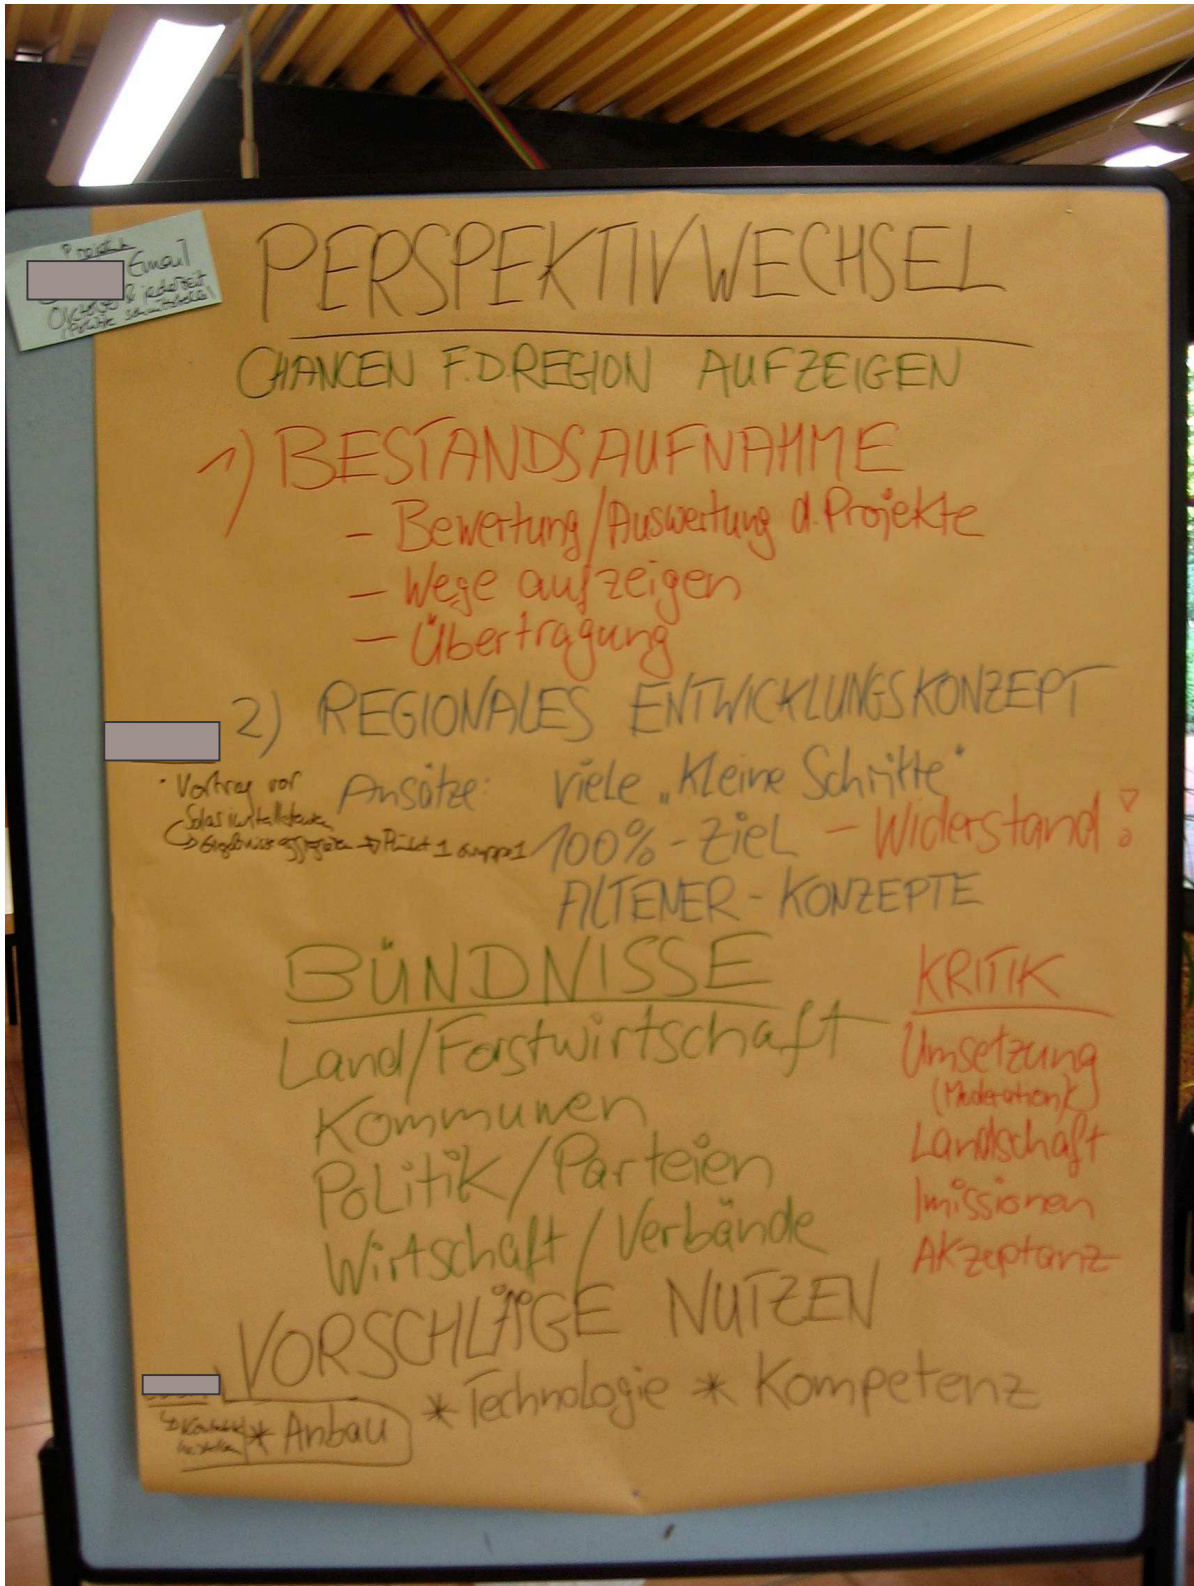 Email
Oktober & jederzeit
PERSPEKTIVWECHSEL
CHANCEN F.D.REGION AUFZEIGEN
1) BESTANDSAUFNAHME
- Bewertung/Auswertung d. Projekte
- Wege aufzeigen
- Übertragung
2) REGIONALES ENTWICKLUNGSKONZEPT
· Vortrag vor
Ansätze: viele „Kleine Schritte"
100% - Ziel - Widerstand!
Punkt 1 Gruppe 1
ALTENER - KONZEPTE
BÜNDNISSE
Land/Forstwirtschaft
Kommunen
Politik/Parteien
Wirtschaft/Verbände
KRITIK
Umsetzung
(Moderation)
Landschaft
Imissionen
Akzeptanz
VORSCHLÄGE NUTZEN
* Anbau * Technologie * Kompetenz